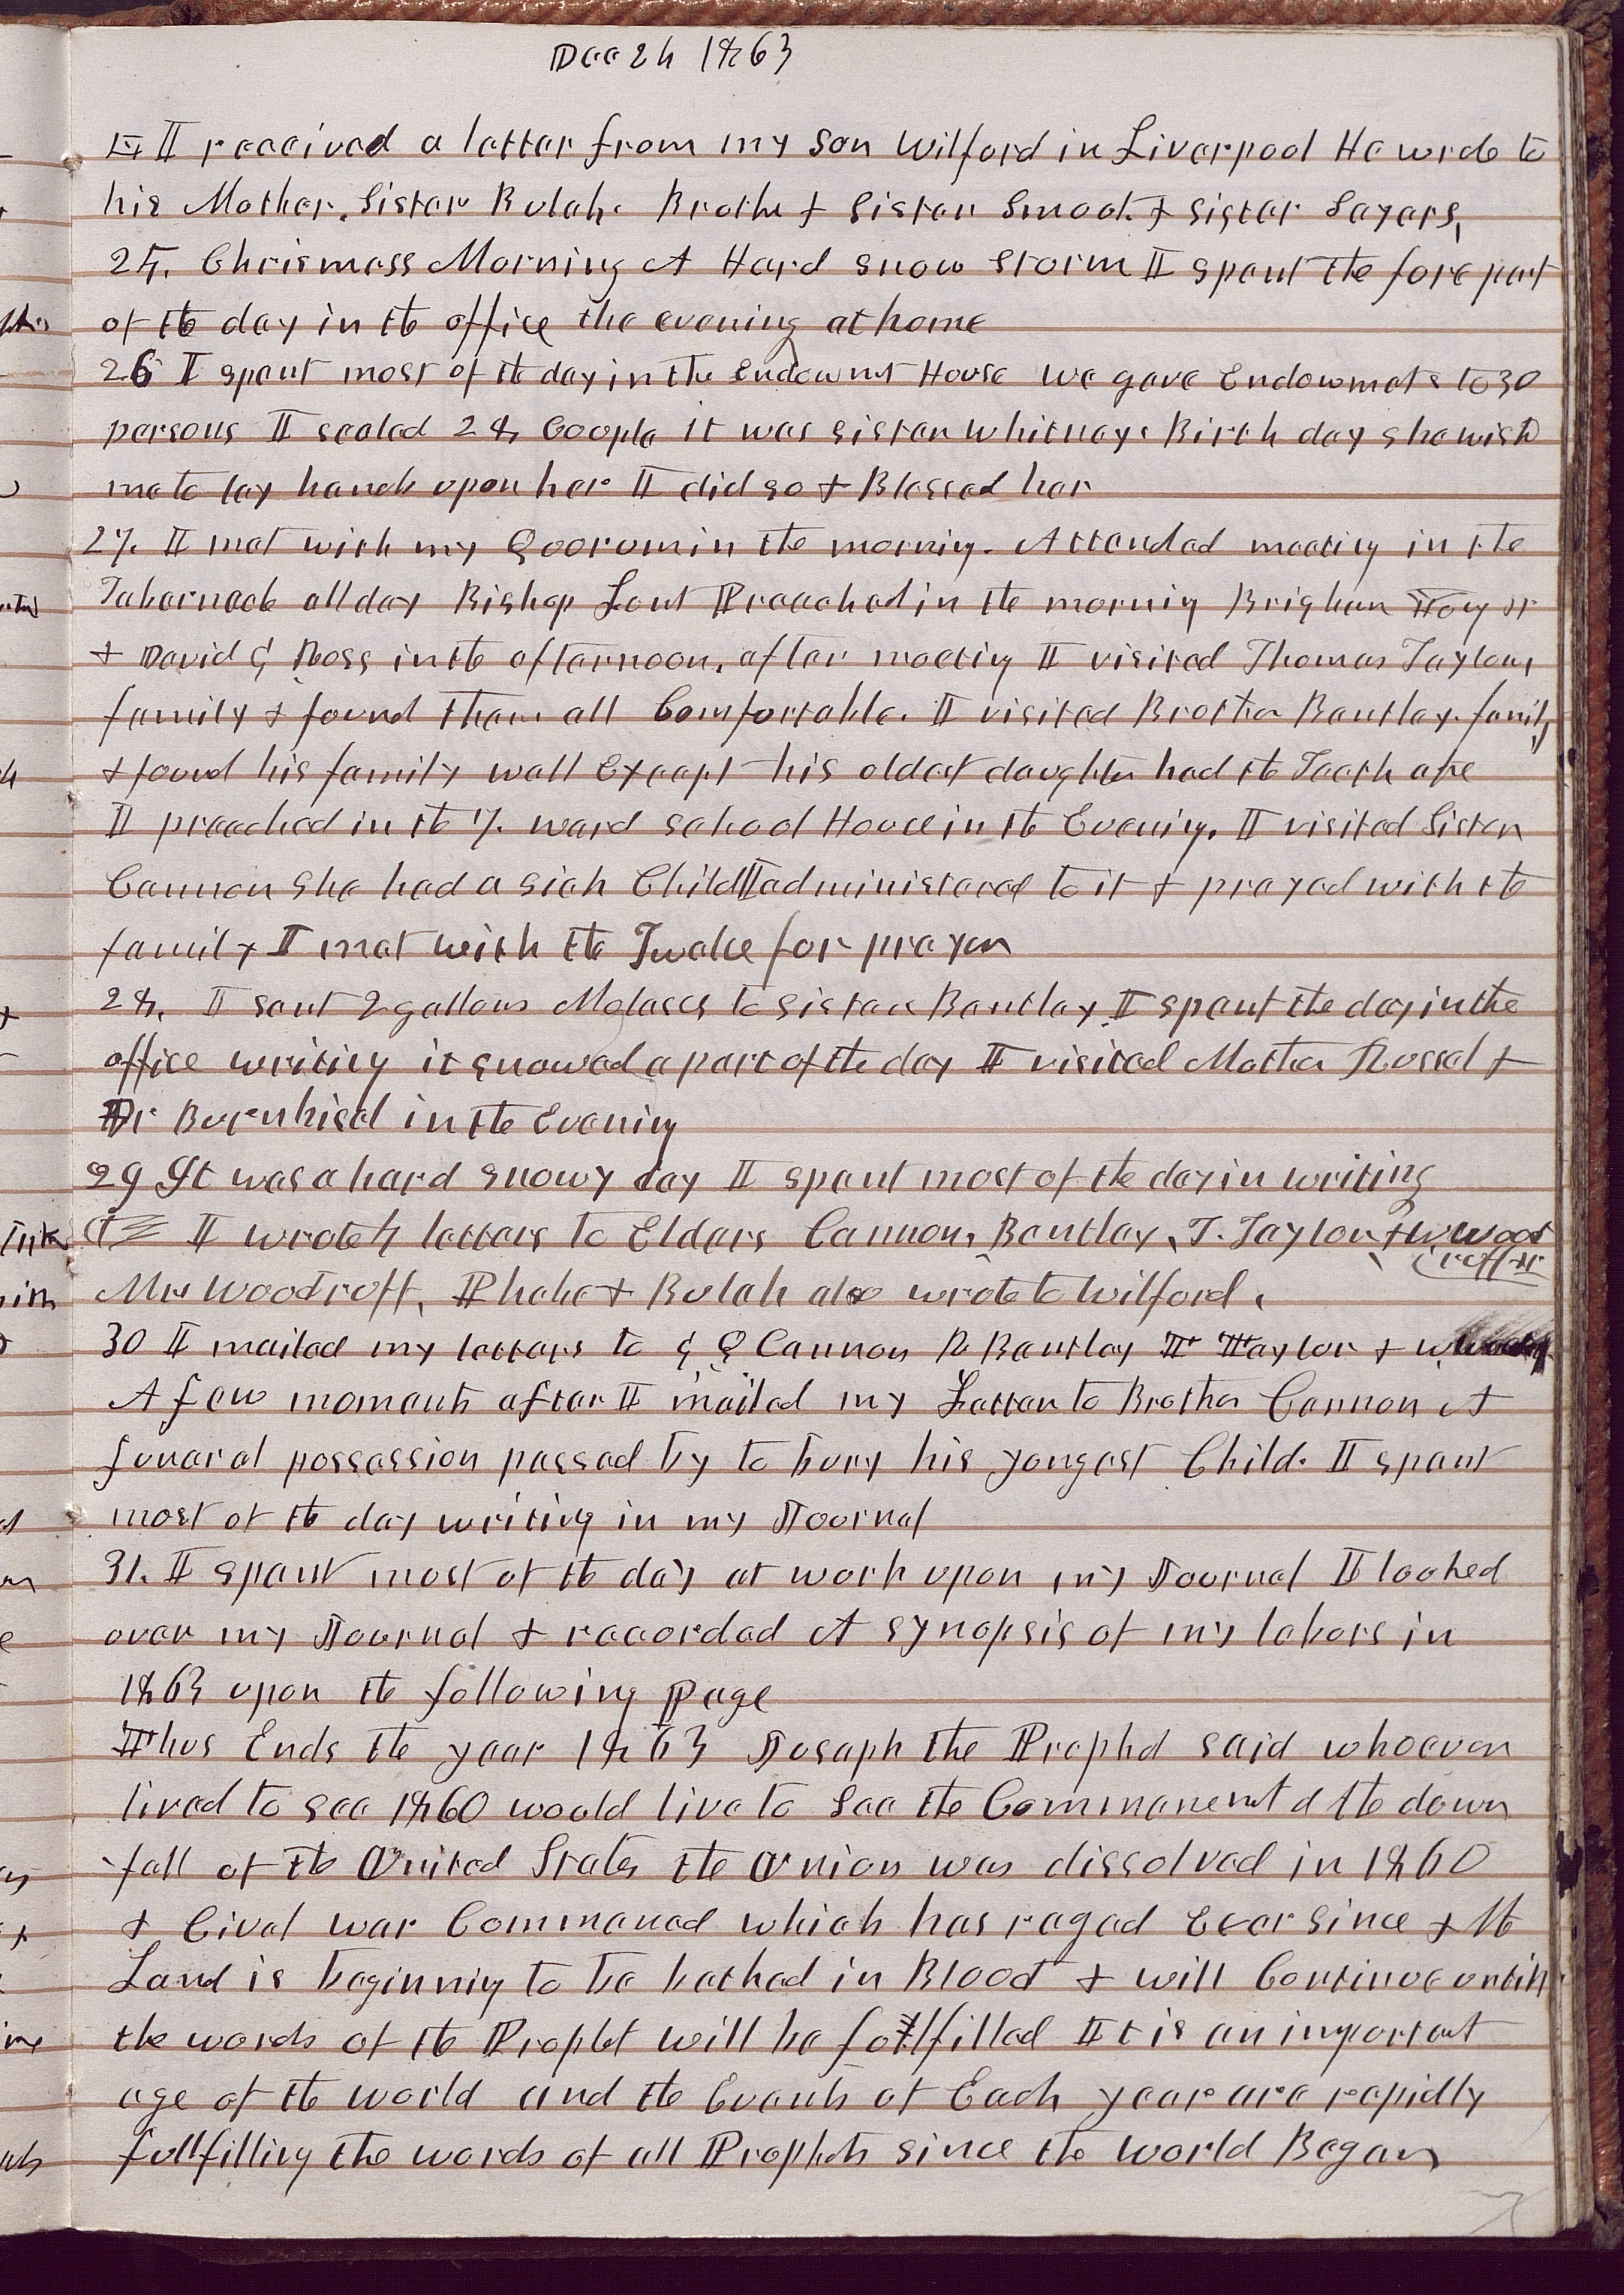 Dec 24 1863
I received a letter from my son Wilford in Liverpool He wrote to
his Mother, Sister Bulah. Brother & Sister Smoot. & Sister Sayers,
25. Chrismass Morning A Hard snow storm I spent the fore part
of the day in the office the evening at home
26 I spent most of the day in the Endowmet House We gave Endowmets to 30
persons I sealed 28 Coople it was sister Whitneys Birth day she wishd
me to lay hands upon her I did so & Blessed her
27. I met with my Qoorum in the morning. Attended meeting in the
Tabernacle all day Bishop Lout Preached in the morning Brigham Young Jr
& David G Ross in the afternoon, after meeting I visited Thomas Taylors
family & found them all Comfortable. I visited Brother Bentley family
& found his family well Except his oldest daughter had the Teeth ake
I preached in the 7. ward school House in the Evening. I visited Sister
Cannon she had a sick Child I administered to it & prayed with the
family I met with the Twelve for prayer
28, I sent 2 gallons Molasses to Sister Bentley I spent the day in the
office writing it snowed a part of the day I visited Mother Russel &
Dr Bernhisel in the Evening
29 It was a hard snowy day I spent most of the day in writing
I wrote 4 letters to Elders Cannon, Bentley, T. Taylor & W Wood
ruff Jr
Mrs Woodruff, Phebe & Bulah also wrote to Wilford,
30 I mailed my letters to G Q Cannon R Bentley T Taylor & W
A few moments after I mailed my Letter to Brother Cannon A
funeral possession passed by to bury his yongest Child. I spent
most of the day writing in my Journal
31. I spent most of the day at work upon my Journal I looked
over my Journal & recorded A synopsis of my labors in
1863 upon the following Page
Thus Ends the year 1863 Joseph the Prophet said whoever
lived to see 1860 would live to see the Commanement of the down
fall of the United States the Union was dissolved in 1860
& Civel war Commenced which has raged Ever since & the
Land is beginnig to be bathed in Blood & will Continue untill
the words of the Prophet will be fullfilled It is an important
age of the world and the Events of Each year are rapidly
fullfilling the words of all Prophets since the world Began